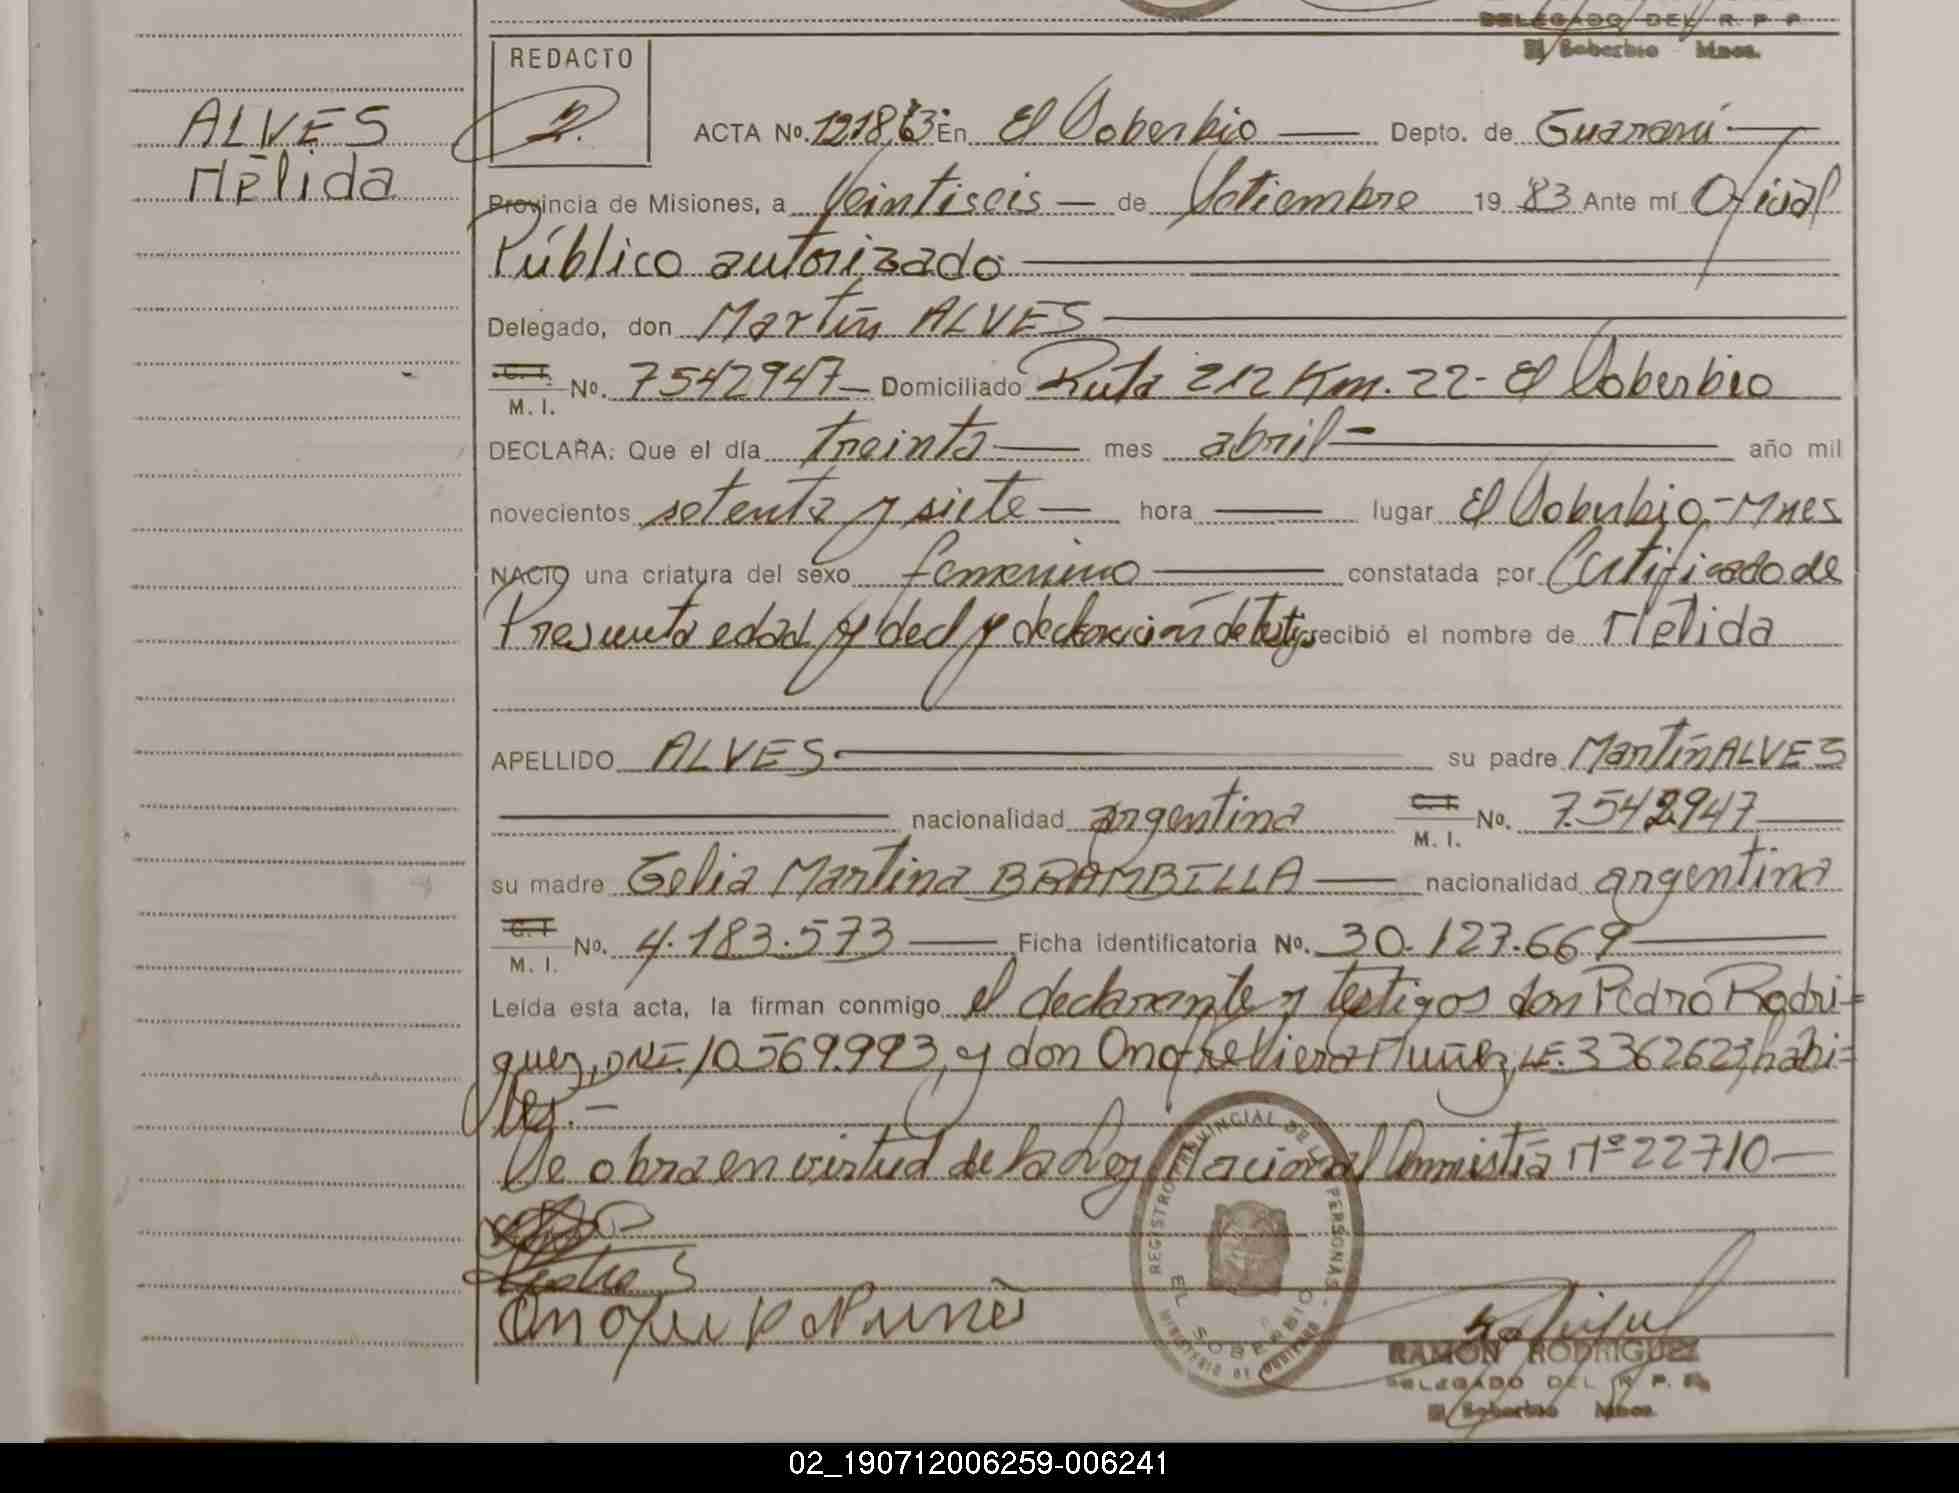 DELEGADO DEL R. P. P.
El Soberbio Mnes.
REDACTO
2.
ALVES
Nélida
ACTA Nº. En El Soberbio Depto. de Guaraní
Provincia de Misiones, a Veintiseis de Setiembre 19 83 Ante mí Oficial
Público autorizado
Delegado, don Martín ALVES
C. I. M. I. No. 7542947 Domiciliado Ruta 212 Km. 22- El Soberbio
DECLARA: Que el día treinta mes abril año mil
novecientos setenta y siete hora lugar El Soberbio-Mnes
NACIO una criatura del sexo femenino constatada por Certificado de
Presunta edad y decl y declaración de testigos recibió el nombre de Nélida
APELLIDO ALVES su padre Martín ALVES
nacionalidad argentina C. I. M. I. No. 7.542.947
su madre Celia Martina BRAMBILLA nacionalidad argentina
C. I. M. I. No. 4.183.573 Ficha identificatoria No. 30.127.669
Leída esta acta, la firman conmigo el declarante y testigos don Pedro Rodri=
guez, DNI. 10.569.993, y don Onofre Viera Nuñez, LE. 3362623, hábi=
les.-
Se obra en virtud de la Ley Nacional Amnistía Nº 22710
REGISTRO PROVINCIAL DE LAS PERSONAS - MINISTERIO DE GOBIERNO
EL SOBERBIO
Pedro
RAMON RODRIGUEZ
DELEGADO DEL R. P. P.
El Soberbio Mnes.
02_190712006259-006241